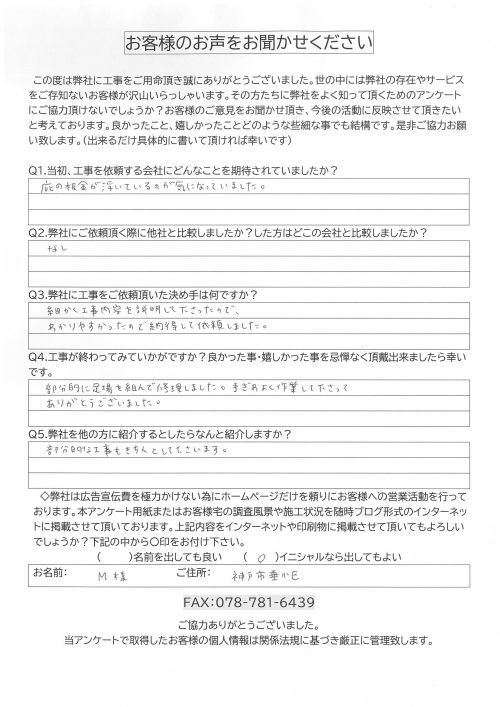 お客様のお声をお聞かせください
この度は弊社に工事をご用命頂き誠にありがとうございました。世の中には弊社の存在やサービス
をご存知ないお客様が沢山いらっしゃいます。その方たちに弊社をよく知って頂くためのアンケート
にご協力頂けないでしょうか？お客様のご意見をお聞かせ頂き、今後の活動に反映させて頂きたい
と考えております。良かったこと、嬉しかったことどのような些細な事でも結構です。是非ご協力お願
い致します。（出来るだけ具体的に書いて頂ければ幸いです）
Q1.当初、工事を依頼する会社にどんなことを期待されていましたか？
庇の板金が浮いているのが気になっていました。
Q2.弊社にご依頼頂く際に他社と比較しましたか？した方はどこの会社と比較しましたか？
なし
Q3.弊社に工事をご依頼頂いた決め手は何ですか？
細かく工事内容を説明して下さったので、
わかりやすかったので納得して依頼しました。
Q4.工事が終わってみていかがですか？良かった事・嬉しかった事を忌憚なく頂戴出来ましたら幸い
です。
部分的に足場を組んで修理しました。手ぎわよく作業して下さって
ありがとうございました。
Q5.弊社を他の方に紹介するとしたらなんと紹介しますか？
部分的な工事もきちんとして下さいます。
◇弊社は広告宣伝費を極力かけない為にホームページだけを頼りにお客様への営業活動を行って
おります。本アンケート用紙またはお客様宅の調査風景や施工状況を随時ブログ形式のインターネッ
トに掲載させて頂いております。上記内容をインターネットや印刷物に掲載させて頂いてもよろしい
でしょうか？下記の中から〇印をお付け下さい。
（　　）名前を出しても良い　（ ○ ）イニシャルなら出してもよい
お名前： M 様　ご住所： 神戸市垂水区
FAX:078-781-6439
ご協力ありがとうございました。
当アンケートで取得したお客様の個人情報は関係法規に基づき厳正に管理致します。